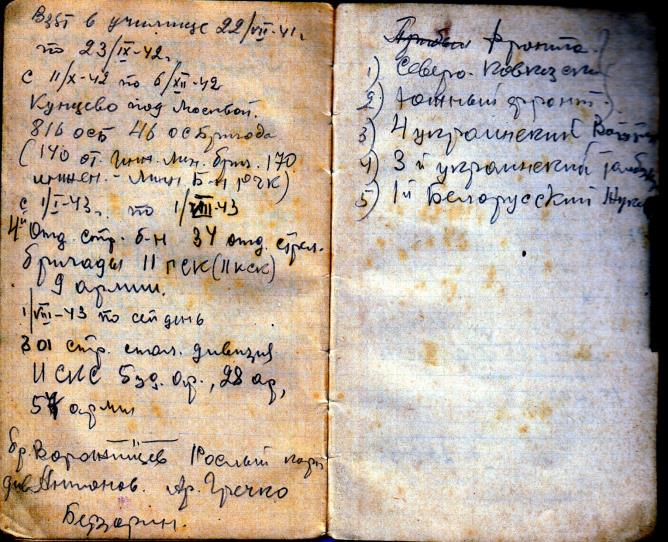 Взят в училище 22/VII-41г.
по 23/IX-42г.
с 11/X-42 по 6/XII-42
Кунцево под Москвой.
816 осб 46 ос бригада
(140 от. инж. мин. бриг. 170
инжен. - мин. Б-н РГК)
с 1/I-43г. по 1/VIII-43
4й Отд. стр. б-н 34 отд. стрел.
бригады 11 гск (11 кск)
9 армии.
1/VIII-43 по сей день
301 стр. стал. дивизия
5 уд. ар., 28 ар,
57 армии
бр. Ворожищев Рослый корп
див. Антонов. Ар. Гречко
Берзарин.
фронта.
1) Северо. Кавказски
2) Южный фронт.
3) 4 украинский
4) 3й украинский
5) 1й Белорусский Жук